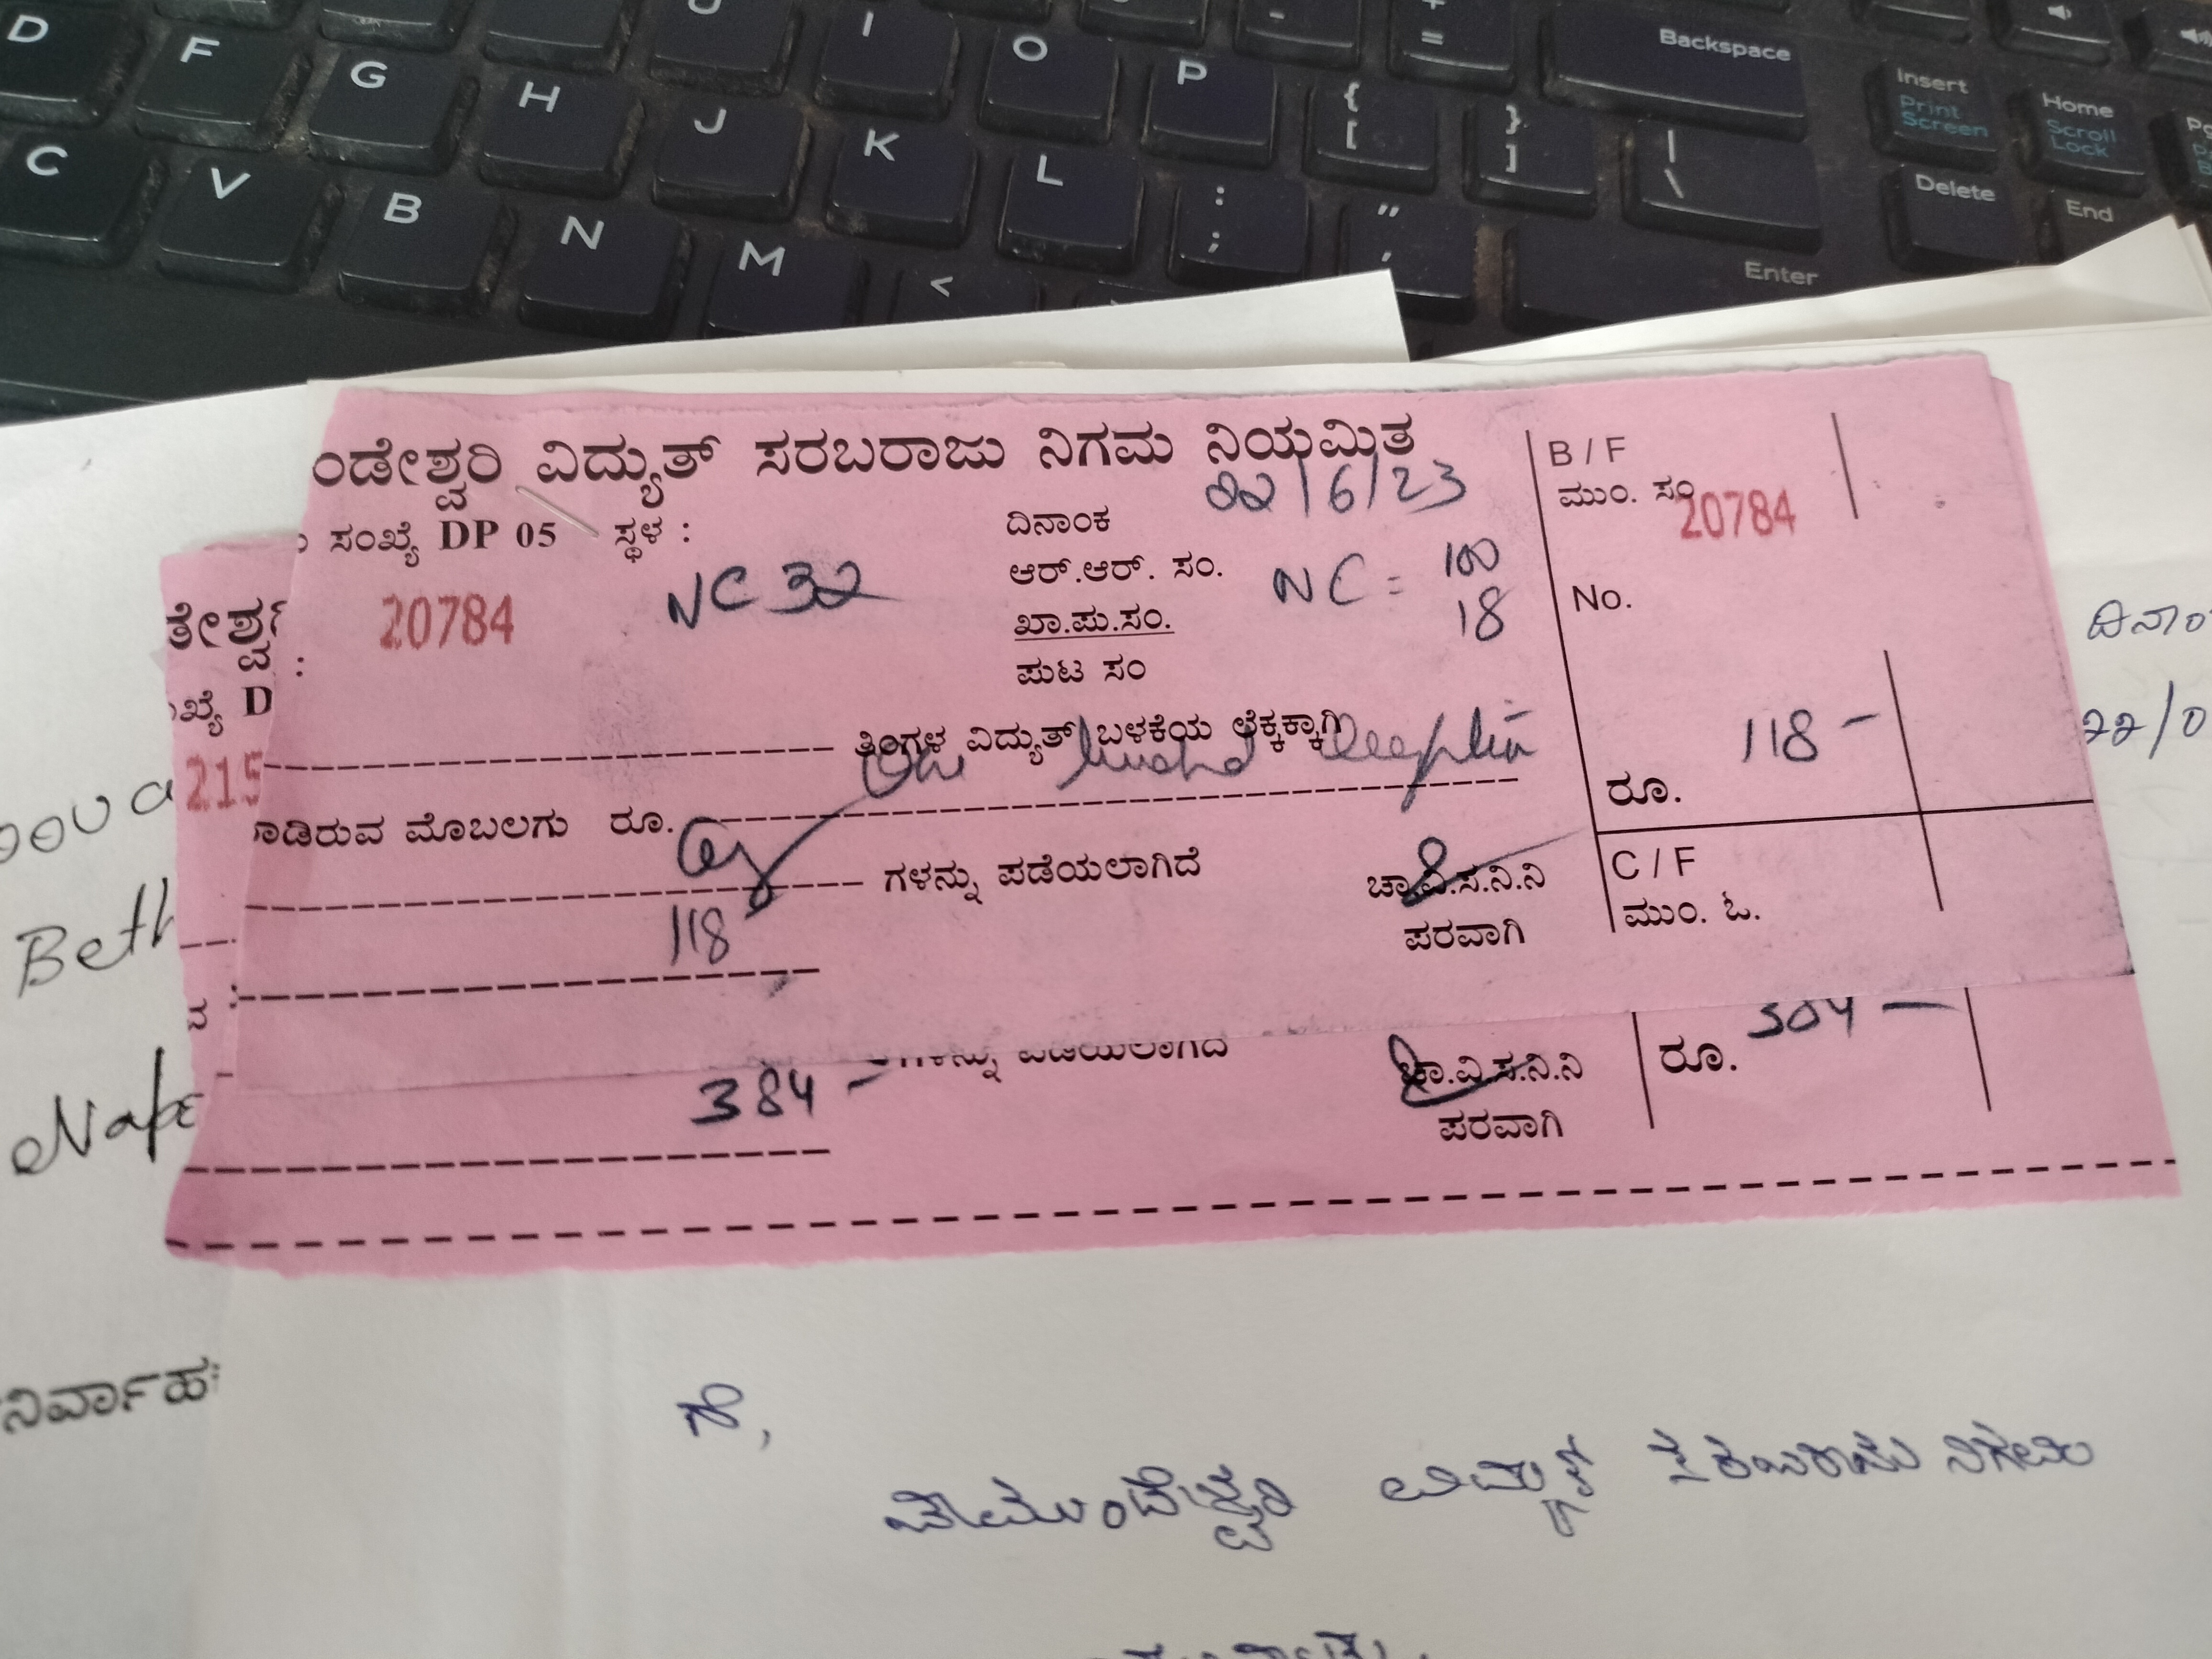 D F G H J I O P { [ } ] - + = Backspace Insert Print Screen Home Scroll Lock
C V B N M K L : ; " ' < | \ Enter Delete End
ಂಡೇಶ್ವರಿ ವಿದ್ಯುತ್ ಸರಬರಾಜು ನಿಗಮ ನಿಯಮಿತ
ಸಂಖ್ಯೆ DP 05 ಸ್ಥಳ :
20784 NC 32
ದಿನಾಂಕ 22/6/23
ಆರ್.ಆರ್. ಸಂ. NC = 100
ಖಾ.ಪು.ಸಂ. 18
ಪುಟ ಸಂ
ತಿಂಗಳ ವಿದ್ಯುತ್ ಬಳಕೆಯ ಲೆಕ್ಕಕ್ಕಾಗಿ
ಾಡಿರುವ ಮೊಬಲಗು ರೂ.
ಗಳನ್ನು ಪಡೆಯಲಾಗಿದೆ
118
ಚಾ.ವಿ.ಸ.ನಿ.ನಿ
ಪರವಾಗಿ
B / F
ಮುಂ. ಸಂ
20784
No.
118 -
ರೂ.
C / F
ಮುಂ. ಓ.
ಖ್ಯೆ D
215
384 -
ಗಳನ್ನು ಪಡೆಯಲಾಗಿದೆ
ಚಾ.ವಿ.ಸ.ನಿ.ನಿ
ಪರವಾಗಿ
ರೂ. 384 -
ದಿನಾಂ
22/0
Beth
ನಿರ್ವಾಹ
ಗೆ,
ಚಾಮುಂಡೇಶ್ವರಿ ವಿದ್ಯುತ್ ಸರಬರಾಜು ನಿಗಮ